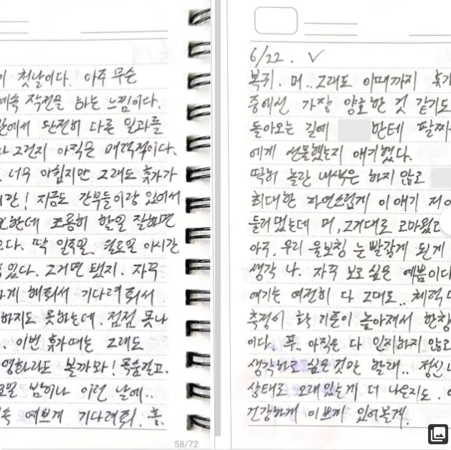 첫날이다. 아주 무슨
작전을 하는 느낌이다.
완전히 다른 일과를
아직은 매력적이다.
너무 아쉽지만 그래도 휴가가
지금도 간부들이랑 있어서
조용히 할일 잘하면
딱 일주일. 월요일 이시간
있다. 그거면 됐지. 자꾸
하게 해줘서 기다려줘서
하지도 못하는데. 점점 못나
이번 휴가때는 그래도
영화라도 볼까봐!
밤이나 이런 날에..
예쁘게 기다려줘. 흠.
58/72
6/22. ✓
복귀. 머.. 그래도 이때까지 휴가
중에선 가장 양호한 것 같기도
돌아오는 길에 한테 팔찌
에게 선물했는지 얘기했다.
딱히 놀란 내색은 하지 않고
최대한 자연스럽게 이 얘기 저
둘러댔는데 머, 그거대로 고마웠고
아주. 우리 울보찡 눈 빨갛게 된게
생각 나. 자꾸 보고 싶은 예쁨이다
여기는 여전히 다 그대로.. 체력
측정이 확 기준이 높아져서 한창
이다. 뭐. 아직은 다 인지하지 않고
생각하고 싶은 것만 한래.. 정신
상태로 오래 있는게 더 나은지도.
건강하게 이쁘게 있어볼게.